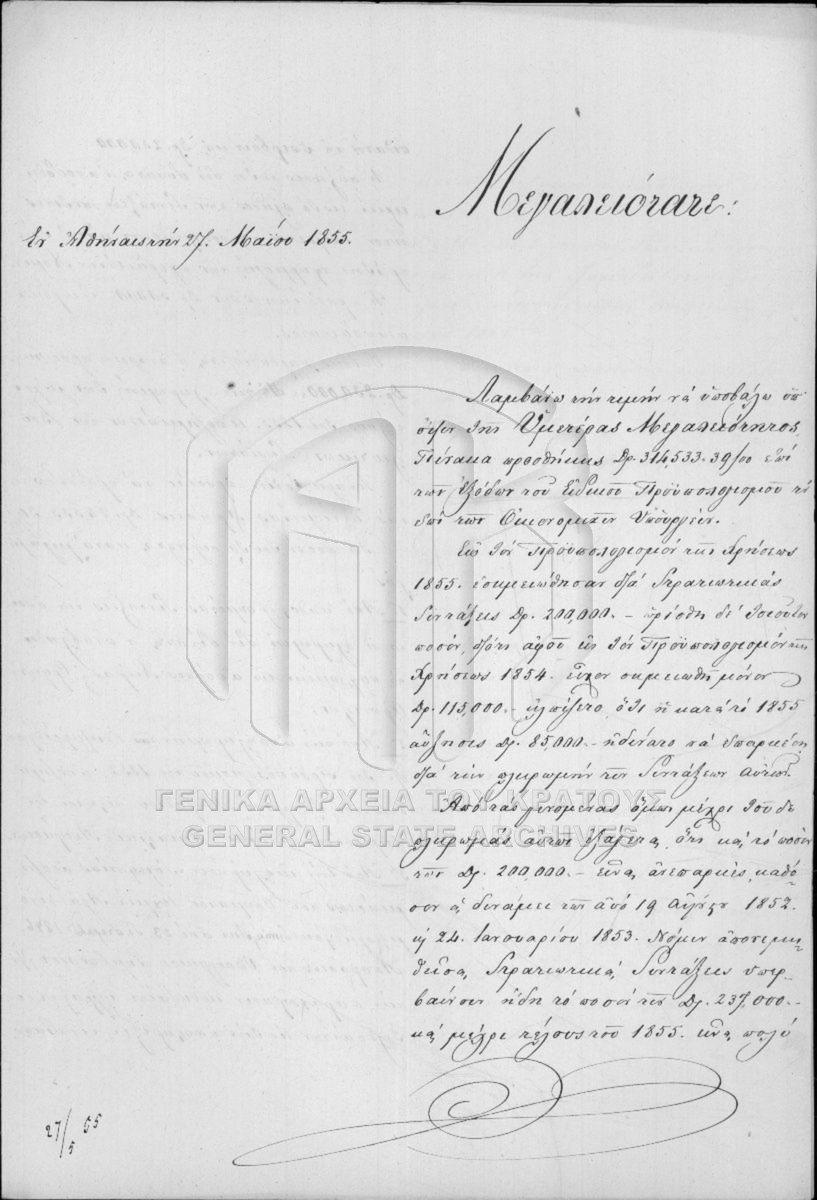 Μεγαλειότατε:
Ἐν Ἀθήναις τὴν 27. Μαΐου 1855.
Λαμβάνω τὴν τιμὴν νὰ ὑποβάλω ὑπ'
ὄψιν τῆς Ὑμετέρας Μεγαλειότητος,
Πίνακα προσθήκης Δρ. 314,533.39/00 ἐπὶ
τῶν ἐξόδων τοῦ Εἰδικοῦ Προϋπολογισμοῦ τοῦ
ἐπὶ τῶν Οἰκονομικῶν Ὑπουργείου.
Εἰς τὸν Προϋπολογισμὸν τῆς Χρήσεως
1855. ἐσημειώθησαν διὰ Στρατιωτικὰς
Συντάξεις Δρ. 200,000.– ὡρίσθη δὲ τοιοῦτον
ποσόν, διότι ἀφοῦ εἰς τὸν Προϋπολογισμὸν τῆς
Χρήσεως 1854. εἶχον σημειωθῆ μόνον
Δρ. 115,000.– ἠλπίζετο, ὅτι ἡ κατὰ τὸ 1855
αὔξησις Δρ. 85,000.– ἠδύνατο νὰ ἐπαρκέσῃ
διὰ τὴν πληρωμὴν τῶν Συντάξεων αὐτῶν.
Ἀπὸ τὰς γενομένας ὅμως μέχρι τοῦδε
πληρωμὰς αὐτῶν ἐξάγεται, ὅτι καὶ τὸ ποσὸν
τῶν Δρ. 200,000.– εἶναι ἀνεπαρκές, καθό-
σον αἱ δυνάμει τῶν ἀπὸ 19 Αὐγούστου 1852.
καὶ 24. Ἰανουαρίου 1853. Νόμων ἀπονεμη-
θεῖσαι Στρατιωτικαὶ Συντάξεις ὑπερ-
βαίνουν ἤδη τὸ ποσὸν τῶν Δρ. 237,000.–
καὶ μέχρι τέλους τοῦ 1855. εἶναι πολὺ
27/5 55
ΓΕΝΙΚΑ ΑΡΧΕΙΑ ΤΟΥ ΚΡΑΤΟΥΣ
GENERAL STATE ARCHIVES